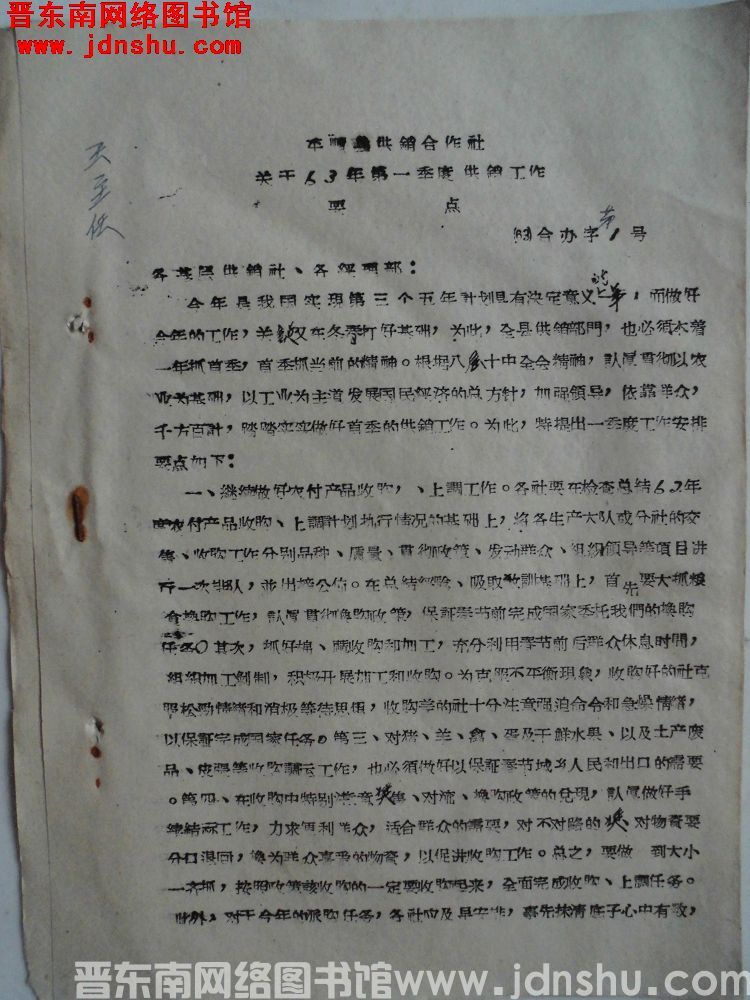 晋东南网络图书馆
www.jdnshu.com
供銷合作社
关于63年第一季度供銷工作
要 点
天主任
(63)合办字第1号
各基层供銷社、各經理部：
今年是我国实现第三个五年計划具有决定意义的一年，而做好
今年的工作，关鍵又在冬季打好基础，为此，全县供銷部門，也必須本着
一年抓首季，首季抓当前的精神。根据八届十中全会精神，認眞貫彻以农
业为基础，以工业为主道发展国民經济的总方針，加强領导，依靠群众，
千方百計，踏踏实实做好首季的供銷工作。为此，特提出一季度工作安排
要点如下：
一、継續做好农付产品收购，、上調工作。各社要在检查总結62年
度农付产品收购、上調計划执行情况的基础上，将各生产大队或分社的交
售、收购工作分别品种、质量、貫彻政策、发动群众、組織領导等項目进
行一次排队，並出榜公佈。在总結經驗、吸取教訓基础上，首先要大抓粮
食換购工作，認眞貫彻換购政策，保証春节前完成国家委托我們的換购
任务。其次，抓好棉、蔴收购和加工，充分利用春节前后群众休息时間，
組织加工制，积极开展加工和收购。为克服不平衡現象，收购好的社克
服松劲情緒和消极等待思想，收购差的社十分注意强迫命令和急燥情緒，
以保証完成国家任务。第三、对猪、羊、禽、蛋及干鮮水果、以及土产废
品、皮張等收购調云工作，也必須做好以保証春节城乡人民和出口的需要
。第四、在收购中特别注意奖售、对流、換购政策的兑現，認眞做好手
續結אر工作，力求便利群众，适合群众的需要，对不对路的奖对物資要
分口退回，換为群众喜爱的物資，以促进收购工作。总之，要做 到大小
一齐抓，按照政策該收购的一定要收购起来，全面完成收购、上調任务。
此外，对于今年的派购任务，各社应及早安排，事先抹清底子心中有数，
晋东南网络图书馆www.jdnshu.com